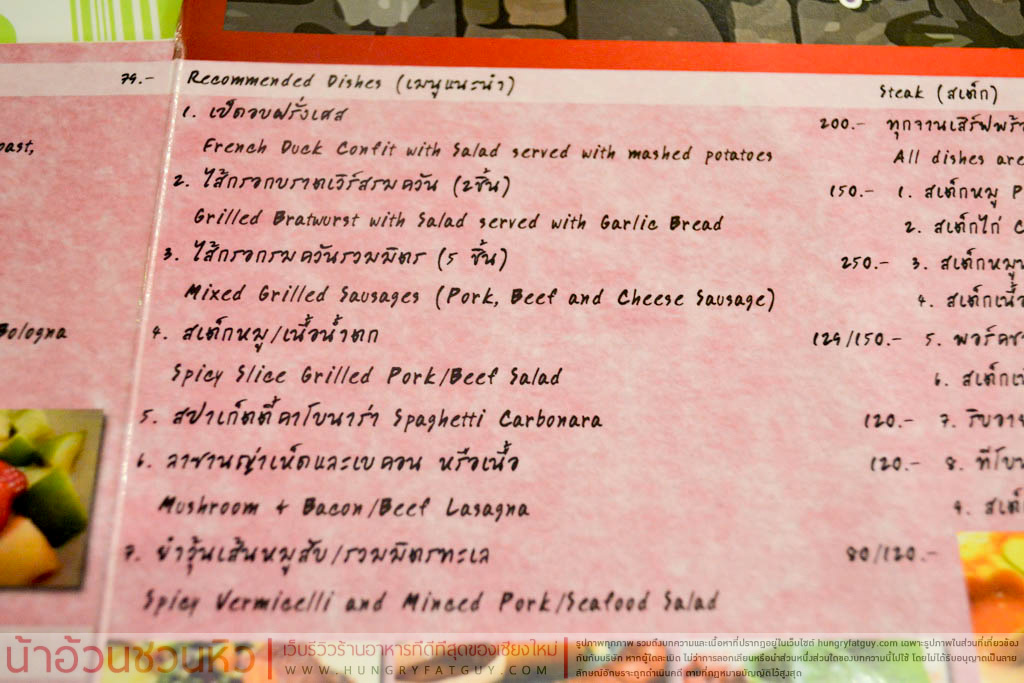 79.-
oast,
Bologna
Recommended Dishes (เมนูแนะนำ)
1. เป็ดอบฝรั่งเศส 200.-
French Duck Confit with Salad served with mashed potatoes
2. ไส้กรอกบราตเวิร์สรมควัน (2ชิ้น) 150.-
Grilled Bratwurst with Salad served with Garlic Bread
3. ไส้กรอกรมควันรวมมิตร (5 ชิ้น) 250.-
Mixed Grilled Sausages (Pork, Beef and Cheese Sausage)
4. สเต็กหมู/เนื้อน้ำตก 129/150.-
Spicy Slice Grilled Pork/Beef Salad
5. สปาเก็ตตี้คาโบนาร่า Spaghetti Carbonara 120.-
6. ลาซานญ่าเห็ดและเบคอน หรือเนื้อ 120.-
Mushroom + Bacon/Beef Lasagna
7. ยำวุ้นเส้นหมูสับ/รวมมิตรทะเล 80/120.-
Spicy Vermicelli and Minced Pork/Seafood Salad
Steak (สเต็ก)
ทุกจานเสิร์ฟพร้
All dishes are
1. สเต็กหมู P
2. สเต็กไก่ C
3. สเต็กหมู
4. สเต็กเนื้อ
5. พอร์คช
6. สเต็กเ
7. ริบอาย
8. ทีโบน
9. สเต็
น้าอ้วนชวนหิว
เว็บรีวิวร้านอาหารที่ดีที่สุดของเชียงใหม่
WWW.HUNGRYFATGUY.COM
รูปภาพทุกภาพ รวมถึงบทความและเนื้อหาที่ปรากฏอยู่ในเว็บไซต์ hungryfatguy.com เฉพาะรูปภาพในส่วนที่เกี่ยวข้อง
กับทางบริษัท หากผู้ใดละเมิด ไม่ว่าการลอกเลียนหรือนำส่วนหนึ่งส่วนใดของบทความนี้ไปใช้ โดยไม่ได้รับอนุญาตเป็นลาย
ลักษณ์อักษรจะถูกดำเนินคดี ตามที่กฎหมายบัญญัติไว้สูงสุด